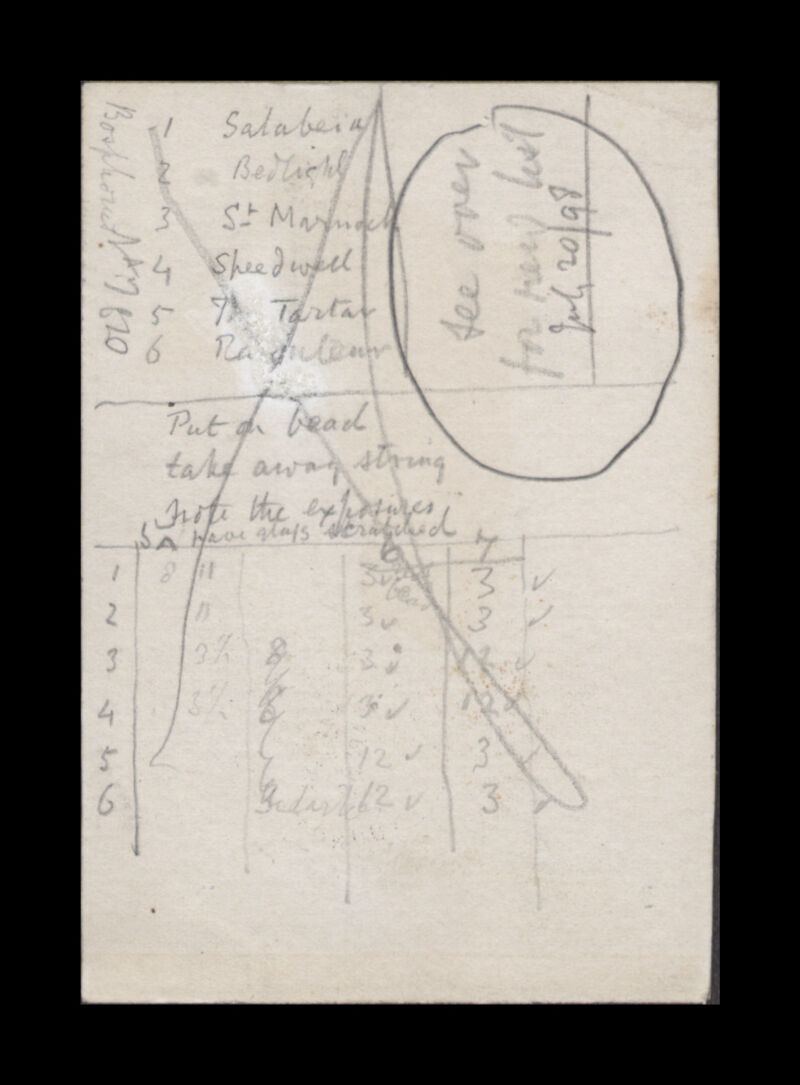 1 Salabeia
2 Bedlight
3 St Marnock
4 Speedwell
5 The Tartar
6
Put on bead
take away string
note the exposures
have glass scratched
See over
for new list
July 20/98
5 6 7
1 8 11 3 ✓ 3 ✓
2 11 3 ✓ 3 ✓
3 3½ 8 3 ✓ 12 ✓
4 3½ 3 ✓ 12 ✓
5 12 ✓ 3 ✓
6 12 ✓ 3 ✓